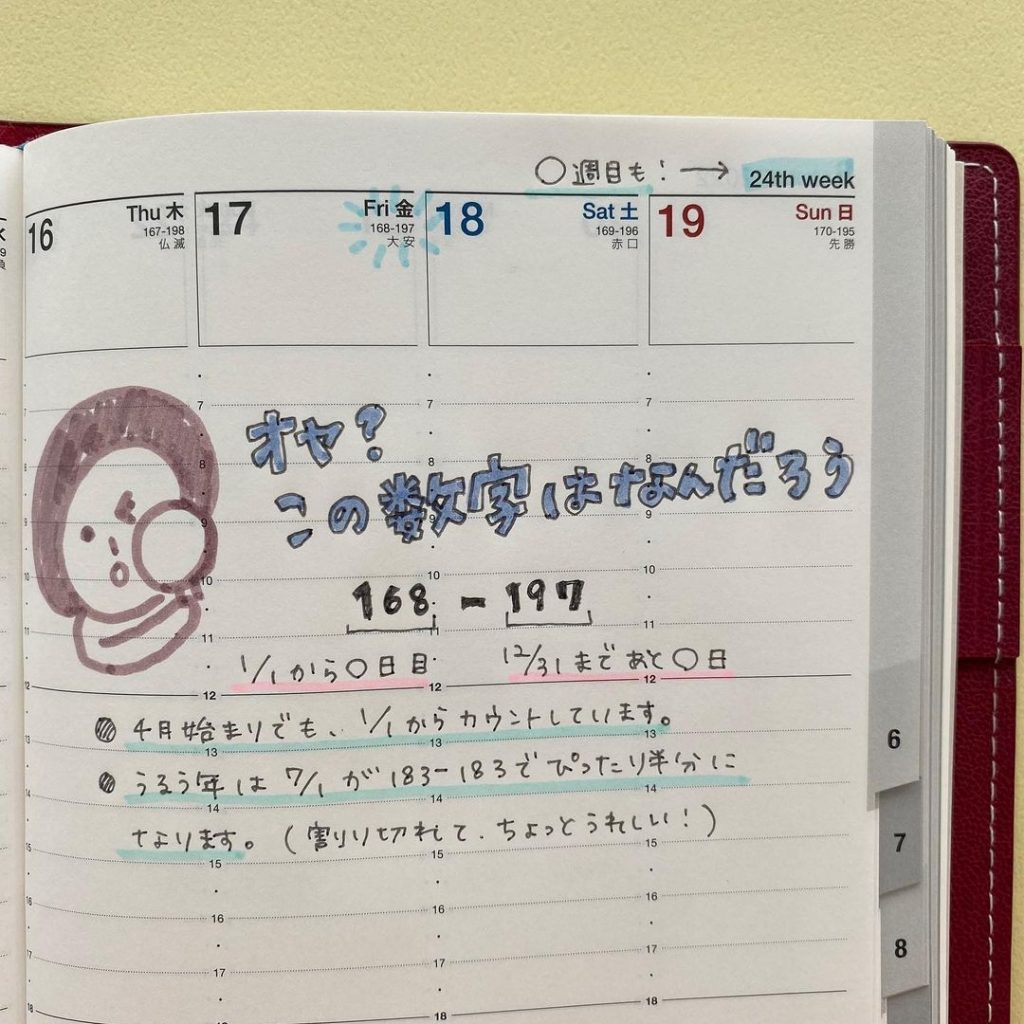 ○週目も！→ 24th week
16 Thu 木 167-198 仏滅
17 Fri 金 168-197 大安
18 Sat 土 169-196 赤口
19 Sun 日 170-195 先勝
オヤ？
この数字はなんだろう
168 - 197
1/1から○日目 12/31まであと○日
4月始まりでも、1/1からカウントしています。
うるう年は 7/1 が 183-183でぴったり半分に
なります。(割りり切れて、ちょっとうれしい！)
7 7 7
8 8 8
9 9 9
10 10 10
11 11 11
12 12 12
13 13 13
14 14 14
15 15 15
16 16 16
17 17 17
18 18 18
6
7
8